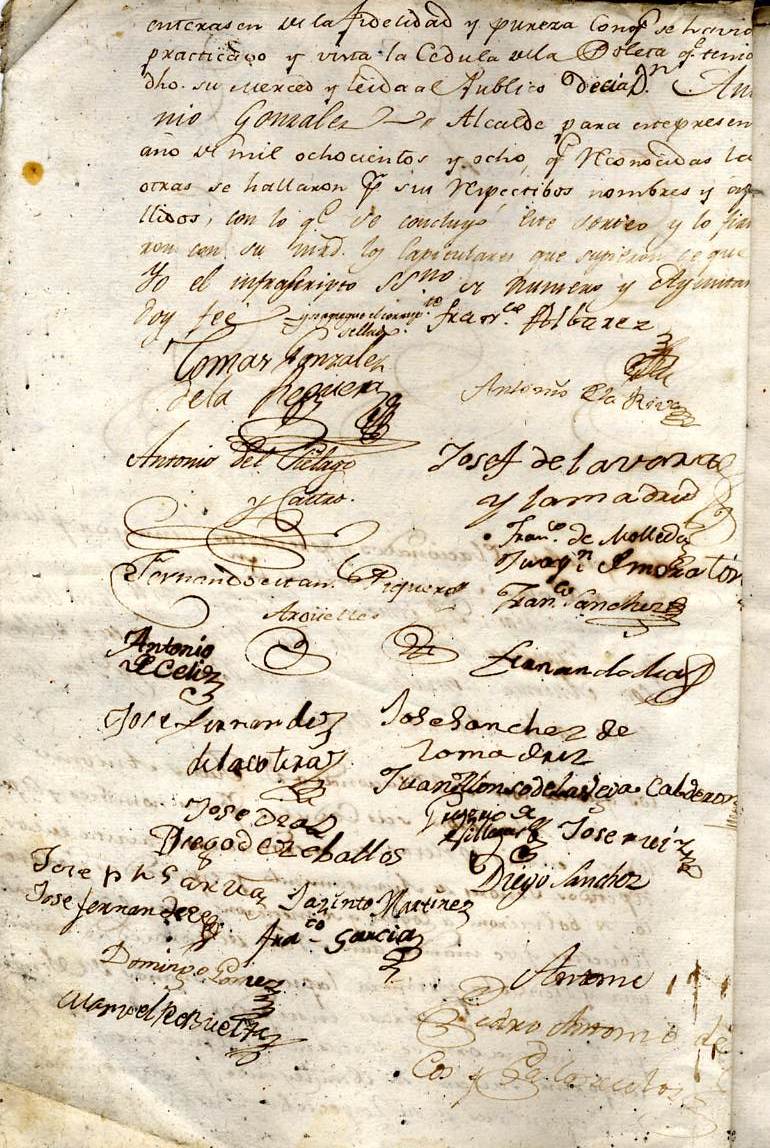 enterasen de la fidelidad y pureza conq.e se havia
practicado y vista la Cedula de la Boleta q.e tenia
dho. su merced y leida al Publico Decia D.n An
nio Gonzalez Alcalde para este presen
año de mil ochocientos y ocho, q.e Reconocidas la
otras se hallaron p.r sus Respectibos nombres y ape
llidos, con lo q.e se concluyó este sorteo y lo firm
ron con su mrd. los Capitulares que supieron de que
Yo el infrascripto SS.no de numero y Ayuntam
Doy fee
Fran.co Albarez
Tomas Gonzalez
de la Reguera
Antonio de la Riva
Antonio del Pielago
y Castro.
Josef de la
y lamadrid
Fran.co de Molleda
Juaq.n Smoratón
Fernando
Piqueros
Argüelles
Fran.co Sanchez
Antonio
Celiz
Fernando Diaz
Jose Fernandez
de la cotera
Jose Sanchez de
lomadriz
Juan Alonso de la Vega Calderon
Jose Diaz
Diego de Zeballos
Jose ruiz
Joseph Garzia
Diego Sanchez
Jose fernandez
Jazinto Martinez
fran.co Garcia
Domingo Gomez
Manuel Rebuelta
Antonio
Pedro Antonio de
Cos y